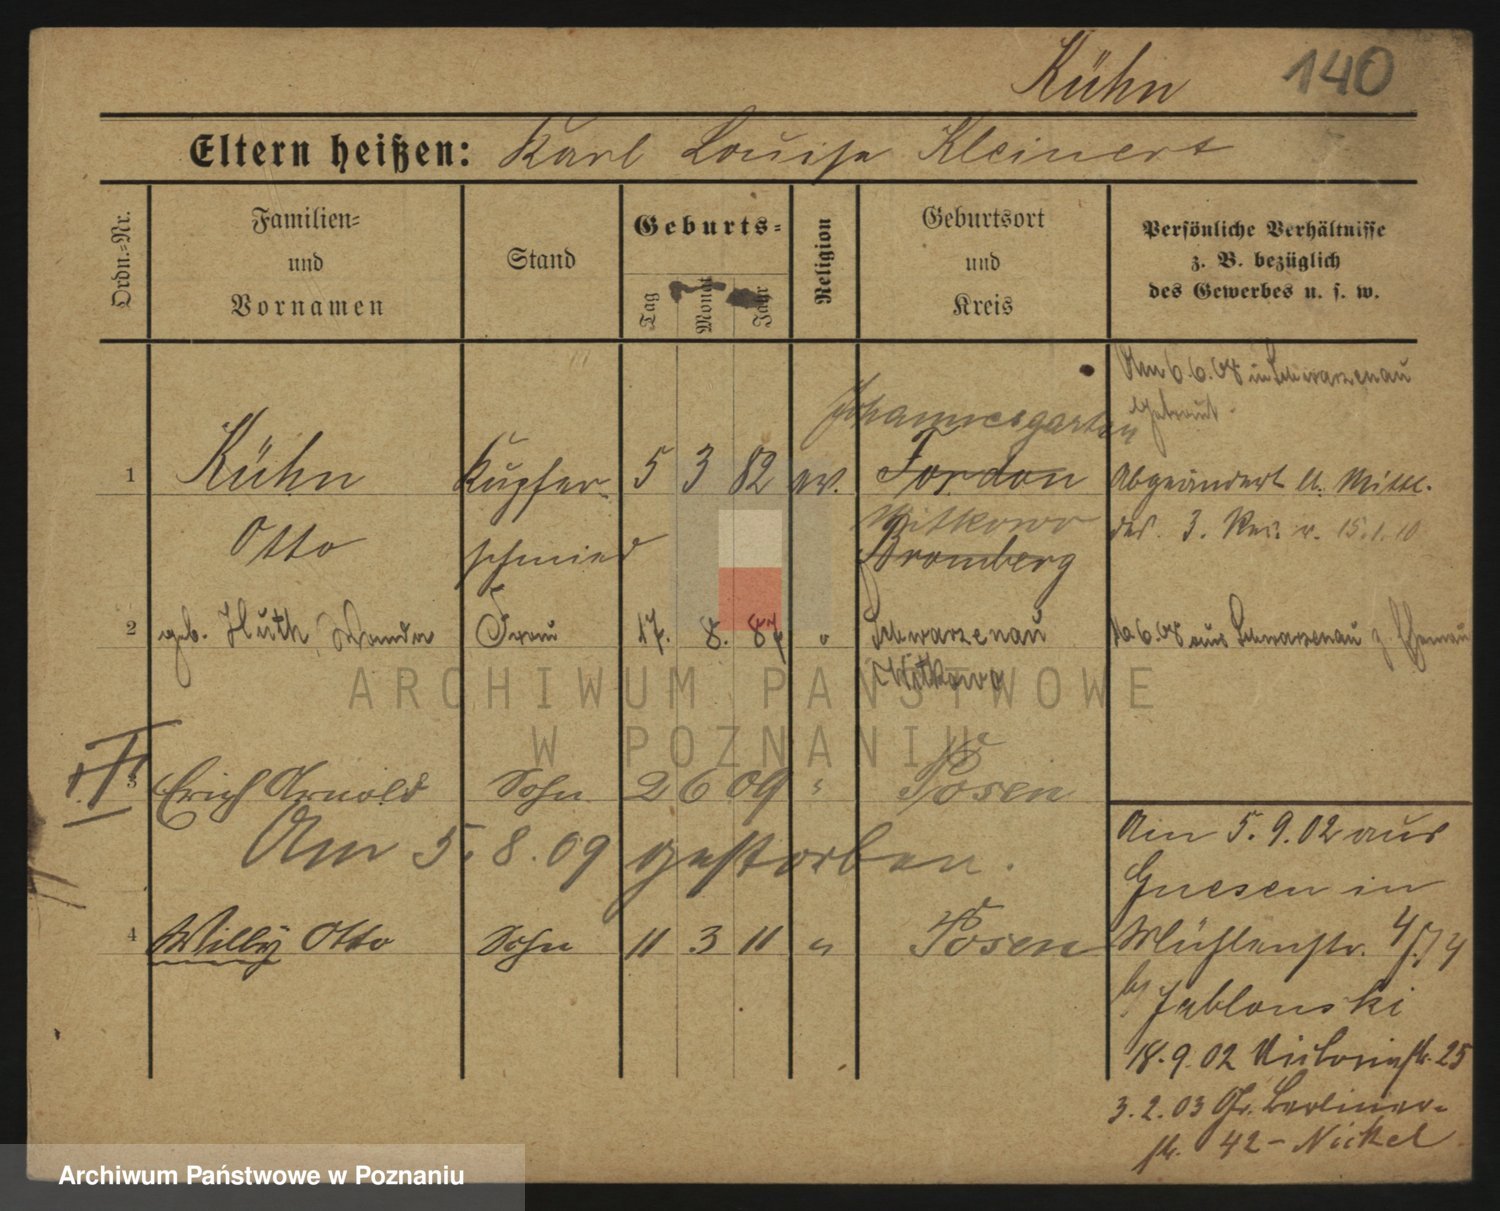 Kühn 140
Eltern heißen: Karl Louise Kleinert
Ordn.=Nr.
Familien=
und
Vornamen
Stand
Geburts=
Tag
Monat
Jahr
Religion
Geburtsort
und
Kreis
Persönliche Verhältnisse
z. B. bezüglich
des Gewerbes u. s. w.
Am 6.6.08 in Schwarzenau
getraut.
Johannesgarten
1 Kühn Kupfer- 5 3 82 ev. Fordon Abgeändert lt. Mittl.
Witkowo
Otto schmied Bromberg des 3. Rev. v. 15.1.10
2 geb. Huth, Wanda Frau 17. 8. 87 " Schwarzenau 6.08 aus Schwarzenau z.
Witkowo
3 Erich Arnold Sohn 2 6 09 " Posen
Am 5.8.09 gestorben.
4 Willy Otto Sohn 11 3 11 " Posen
Am 5.9.02 aus
Gnesen in
Mühlenstr. 4
b/ Jablonski
18.9.02 Victoriastr. 25
3.2.03 Gr. Berliner-
str. 42 - Nickel
ARCHIWUM PAŃSTWOWE
W POZNANIU
Archiwum Państwowe w Poznaniu